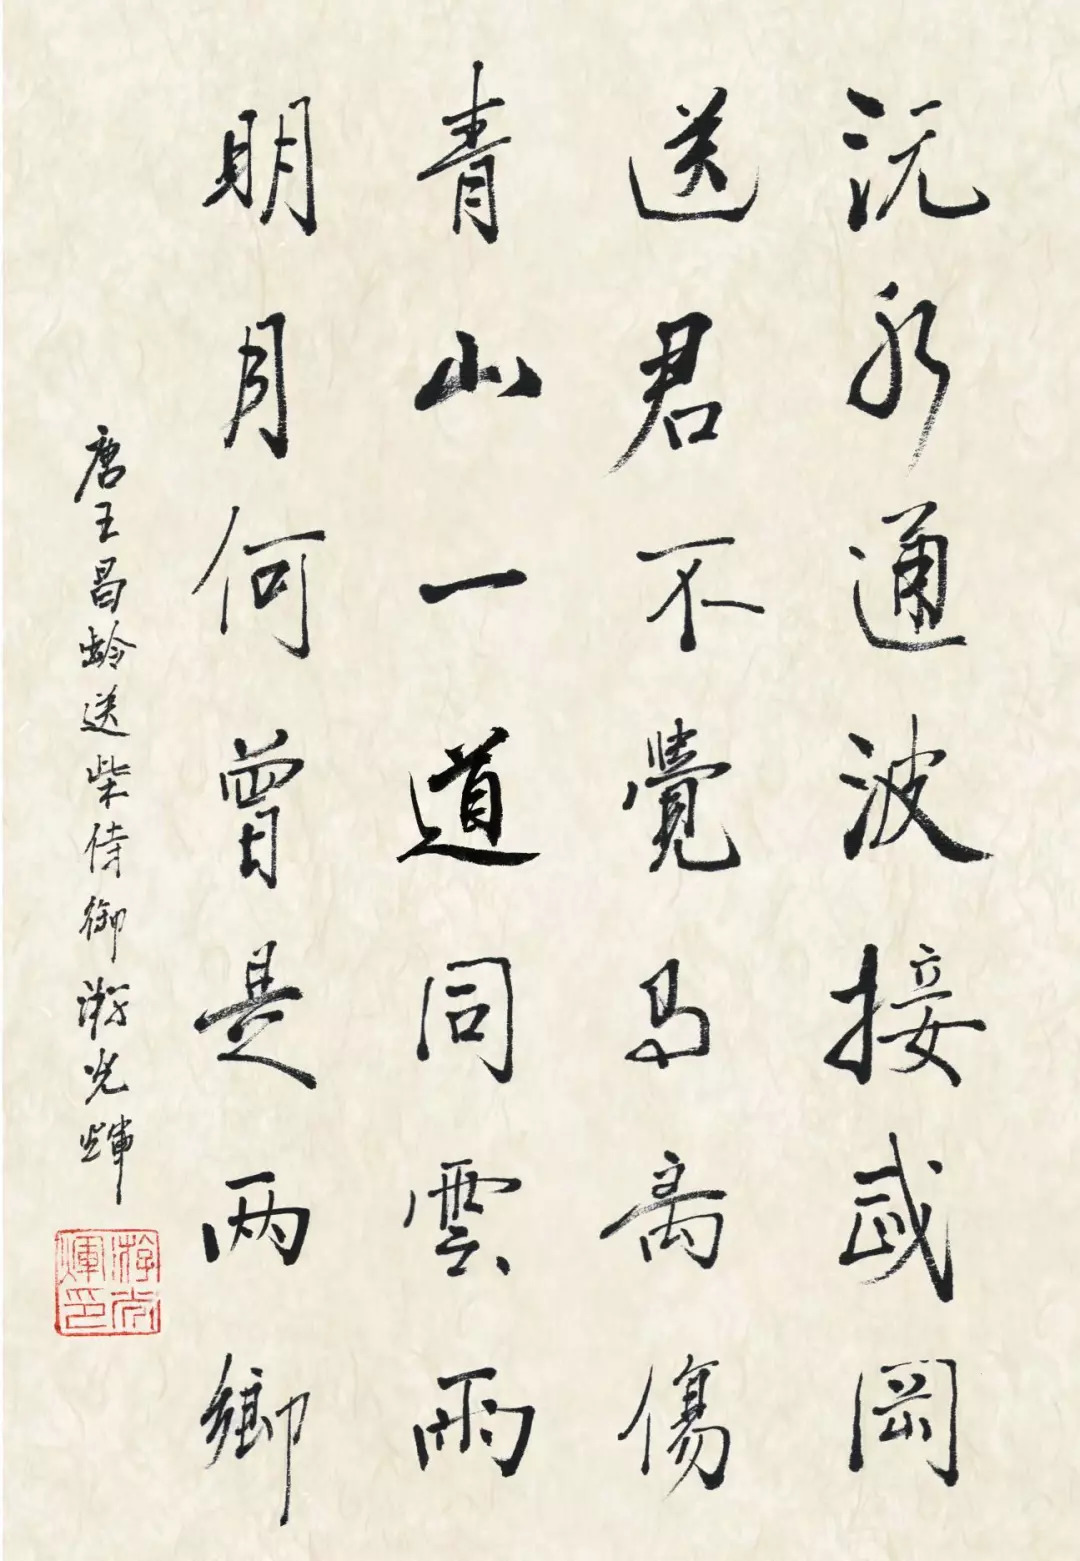 沅水通波接武岡
送君不覺有离傷
青山一道同雲雨
明月何曾是两鄉
唐王昌齡送柴侍御游光輝
游光
輝印